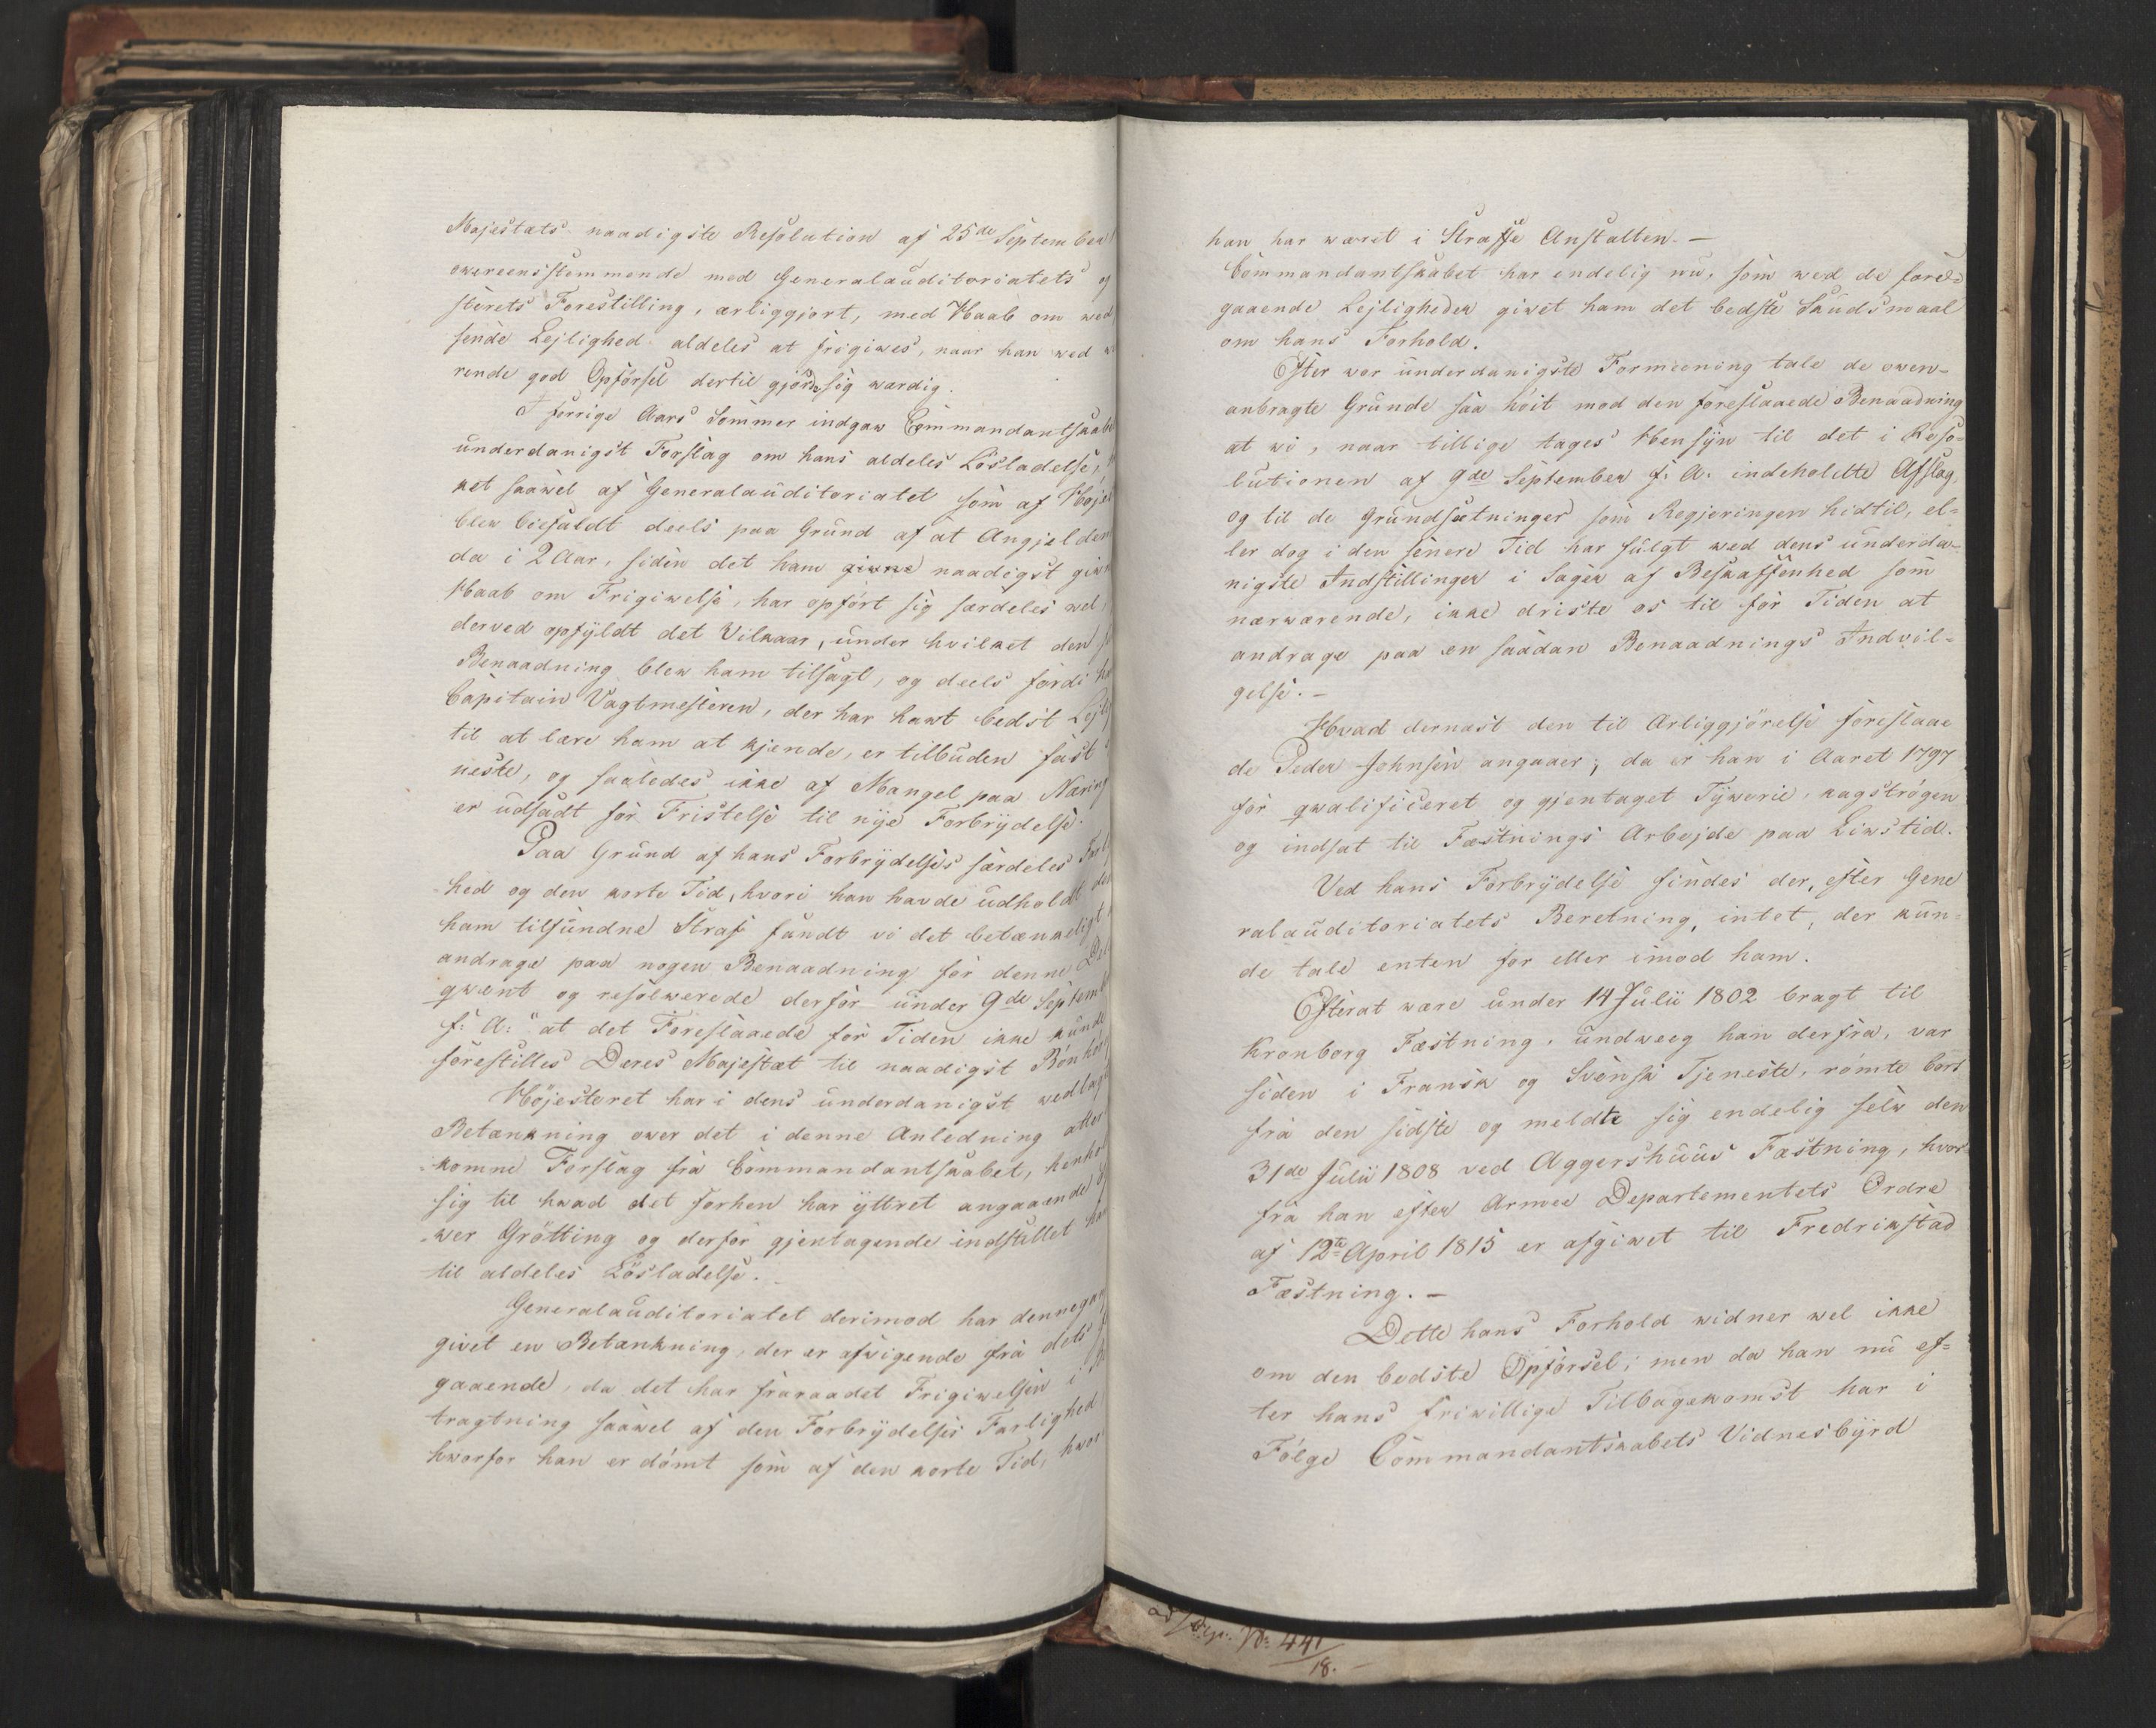 Majestæts naadigste Resolution af 25de September
owereensstemmende med Generalauditoriatets og
sterets Forestilling, ærliggjort, med Haab om ved
sende Lejlighed aldeles at frigiwes, naar han wed
rende god Opförsel dertil gjorde sig wærdig.
I forrige Aars Sommer indgaw Commandantskabe
underdanigst Forslag om hans aldeles Lösladelse,
ket saawel af Generalauditoriatet som af Höje
blew biefaldt deels paa Grund af at Angjelden
da i 2 Aar, siden det ham giwne naadigst giwn
Haab om Frigiwelse, har opfört sig særdeles wel,
derved opfyldt det Vilkaar, under hvilket den
Benaadning blew ham tilsagt, og deels fordi ha
Capitain Vagtmesteren, der har hawt bedst Lejli
til at lære ham at kjende, er tilbuden fast
neste, og saaledes ikke af Mangel paa Næring
er udsadt for Fristelse til nye Forbrydelse.
Paa Grund af hans Forbrydelses særdeles Farl
hed og den korte Tid, hvori han havde udholdt den
ham tilfundne Straf fandt vi det betænkeligt
andrage paa nogen Benaadning for denne Del
qwent og resolwerede derfor under 9de Septemb
f: A: "at det Foreslaaede for Tiden ikke kunde
forestilles Deres Majestæt til naadigst Bönhör
Höjesteret har i dens underdanigst wedlagte
Betænkning ower det i denne Anledning atter
komne Forslag fra Commandantskabet, henhol
sig til hwad det forhen har yttret angaaende
wer Grötting og derfor gjentagende indstillet ham
til aldeles Lösladelse.
Generalauditoriatet derimod har dennegang
givet en Betænkning, der er afvigende fra dets
gaaende, da det har fraraadet Frigiwelsen i
tragtning saawel af den Forbrydelses Farlighed
hworfor han er dömt som af den korte Tid, hwor
han har wæret i Straffe Anstalten. —
Commandantskabet har endelig nu, som wed de fore=
gaaende Lejligheder givet ham det bedste Skudsmaal
om hans Forhold.
Efter vor underdanigste Formeening tale de owen=
anbragte Grunde saa höit mod den foreslaaede Benaadning
at wi, naar tillige tages Hensyn til det i Reso=
lutionen af 9de September f: A: indeholdte Afslag,
og til de Grundsætninger som Regjeringen hidtil, el=
ler dog i den senere Tid har fulgt wed dens underda=
nigste Indstillinger i Sager af Beskaffenhed som
nærwærende, ikke driste os til for Tiden at
andrage paa en saadan Benaadnings Indvil=
gelse. —
Hvad dernæst den til Ærliggjörelse foreslaae
de Peder Johnsen angaaer, da er han i Aaret 1797
for qwalificeret og gjentaget Tywerie, kagströgen
og indsat til Fæstnings Arbejde paa Liwstid.
Ved hans Forbrydelse findes der, efter Gene
ralauditoriatets Beretning, intet, der kun=
de tale enten for eller imod ham.
Efterat være under 14 Julii 1802 bragt til
Kronborg Fæstning, undweeg han derfra, var
siden i Fransk og Svensk Tjeneste, römte bort
fra den sidste og meldte sig endelig selw den
31de Julii 1808 ved Aggershuus Fæstning, hvor=
fra han efter Armee Departementets Ordre
af 12te April 1815 er afgiwet til Fredrikstad
Fæstning. —
Dette hans Forhold widner wel ikke
om den bedste Opförsel; men da han nu ef=
ter hans friwillige Tilbagekomst har i
Fölge Commandantskabets Vidnesbyrd
No 441/18. —